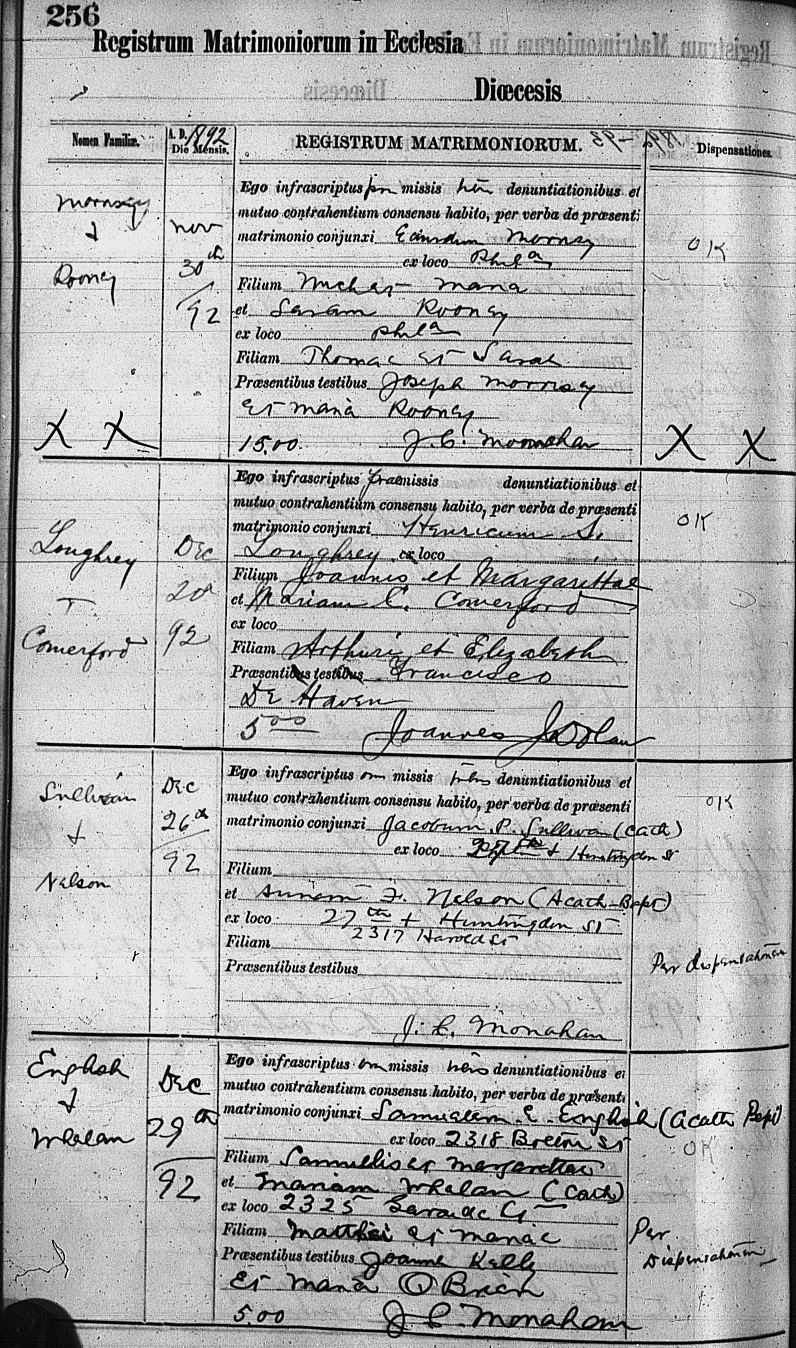 256
Registrum Matrimoniorum in Ecclesia
Diœcesis
Nomen Familiæ.
A. D. 1892
Die Mensis.
REGISTRUM MATRIMONIORUM.
Dispensationes
Morrisey
&
Rooney
Nov
30th
/92
Ego infrascriptus præ missis tribus denuntiationibus et
mutuo contrahentium consensu habito, per verba de præsenti
matrimonio conjunxi Edwardum Morrisey
ex loco Phila
Filium Michael Maria
et Saram Rooney
ex loco Phila
Filiam Thomae et Sarah
Præsentibus testibus Joseph Morrisey
et Maria Rooney
15.00. J. C. Monahan
OK
X X
X X
Loughrey
+
Comerford
Dec
20
92
Ego infrascriptus præmissis denuntiationibus et
mutuo contrahentium consensu habito, per verba de præsenti
matrimonio conjunxi Henricum S.
Loughrey ex loco
Filium Joannis et Margarettae
et Mariam C. Comerford
ex loco
Filiam Arthuri et Elizabeth
Præsentibus testibus Francisco
De Haven
5 00 Joannes J Dolan
OK
Sullivan
&
Nelson
Dec
26th
92
Ego infrascriptus om missis tribus denuntiationibus et
mutuo contrahentium consensu habito, per verba de præsenti
matrimonio conjunxi Jacobum P. Sullivan (Cath)
ex loco & Huntingdon St
Filium
et Annam F. Nelson (Acath-Bapt)
ex loco 27th + Huntingdon St
2317 Harold St
Filiam
Præsentibus testibus
J. C. Monahan
OK
Per dispensationem
English
&
Whelan
Dec
29th
92
Ego infrascriptus om missis tribus denuntiationibus et
mutuo contrahentium consensu habito, per verba de præsenti
matrimonio conjunxi Samuelem E. English (Acath Bapt)
ex loco 2318 St
Filium Samuelis et Margarettae
et Mariam Whelan (Cath)
ex loco 2325
Filiam Matthei et Mariae
Præsentibus testibus Joanne Kelly
et Maria O'Brien
5.00 J C. Monahan
OK
Per
Dispensationem